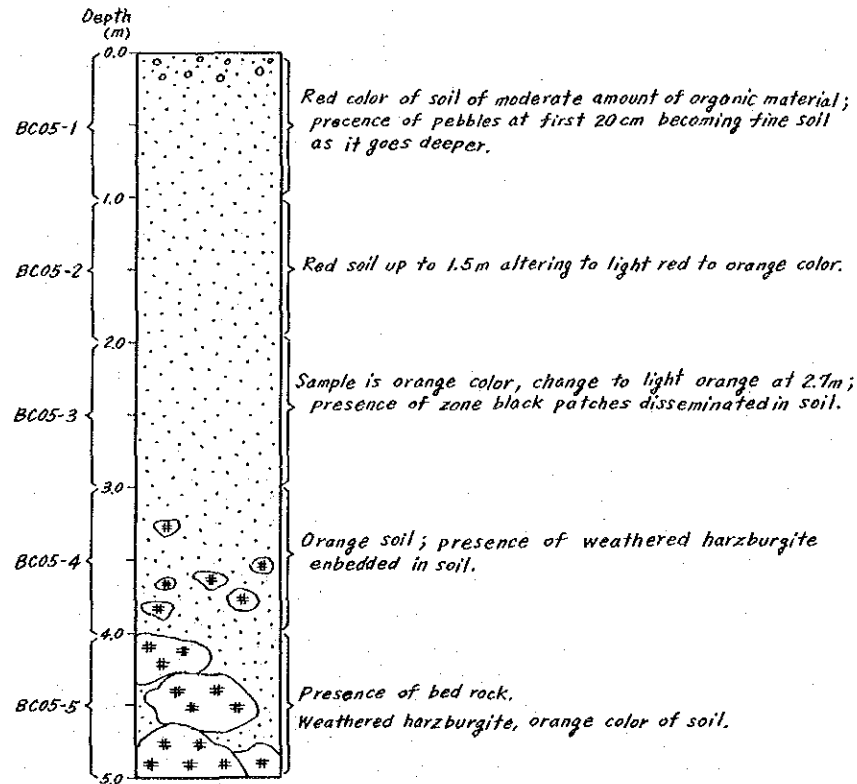 Depth
(m)
0.0
BC05-1
Red color of soil of moderate amount of organic material;
precence of pebbles at first 20cm becoming fine soil
as it goes deeper.
1.0
BC05-2
Red soil up to 1.5m altering to light red to orange color.
2.0
BC05-3
Sample is orange color, change to light orange at 2.7m;
presence of zone black patches disseminated in soil.
3.0
BC05-4
Orange soil; presence of weathered harzburgite
enbedded in soil.
4.0
BC05-5
Presence of bed rock.
Weathered harzburgite, orange color of soil.
5.0